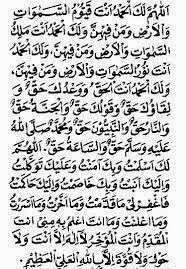 اَللّٰهُمَّ لَكَ الْحَمْدُ اَنْتَ قَيُّوْمُ السَّمٰوَاتِ
وَالْاَرْضِ وَمَنْ فِيْهِنَّ، وَلَكَ الْحَمْدُ اَنْتَ مَلِكُ
السَّمٰوَاتِ وَالْاَرْضِ وَمَنْ فِيْهِنَّ، وَلَكَ الْحَمْدُ
اَنْتَ نُوْرُ السَّمٰوَاتِ وَالْاَرْضِ وَمَنْ فِيْهِنَّ،
وَلَكَ الْحَمْدُ اَنْتَ الْحَقُّ وَوَعْدُكَ حَقٌّ وَ
لِقَاؤُكَ حَقٌّ وَقَوْلُكَ حَقٌّ وَالْجَنَّةُ حَقٌّ
وَالنَّارُ حَقٌّ وَالنَّبِيُّوْنَ حَقٌّ وَمُحَمَّدٌ صَلَّى اللهُ
عَلَيْهِ وَسَلَّمَ حَقٌّ وَالسَّاعَةُ حَقٌّ، اَللّٰهُمَّ
لَكَ اَسْلَمْتُ وَبِكَ آمَنْتُ وَعَلَيْكَ تَوَكَّلْتُ
وَاِلَيْكَ اَنَبْتُ وَبِكَ خَاصَمْتُ وَاِلَيْكَ حَاكَمْتُ
فَاغْفِرْلِيْ مَاقَدَّمْتُ وَمَااَخَّرْتُ وَمَااَسْرَرْتُ
وَمَااَعْلَنْتُ وَمَااَنْتَ اَعْلَمُ بِهِ مِنِّيْ اَنْتَ
الْمُقَدِّمُ وَاَنْتَ الْمُؤَخِّرُ لَااِلٰهَ اِلَّا اَنْتَ وَلَا
حَوْلَ وَلَا قُوَّةَ اِلَّا بِاللهِ الْعَلِيِّ الْعَظِيْمِ